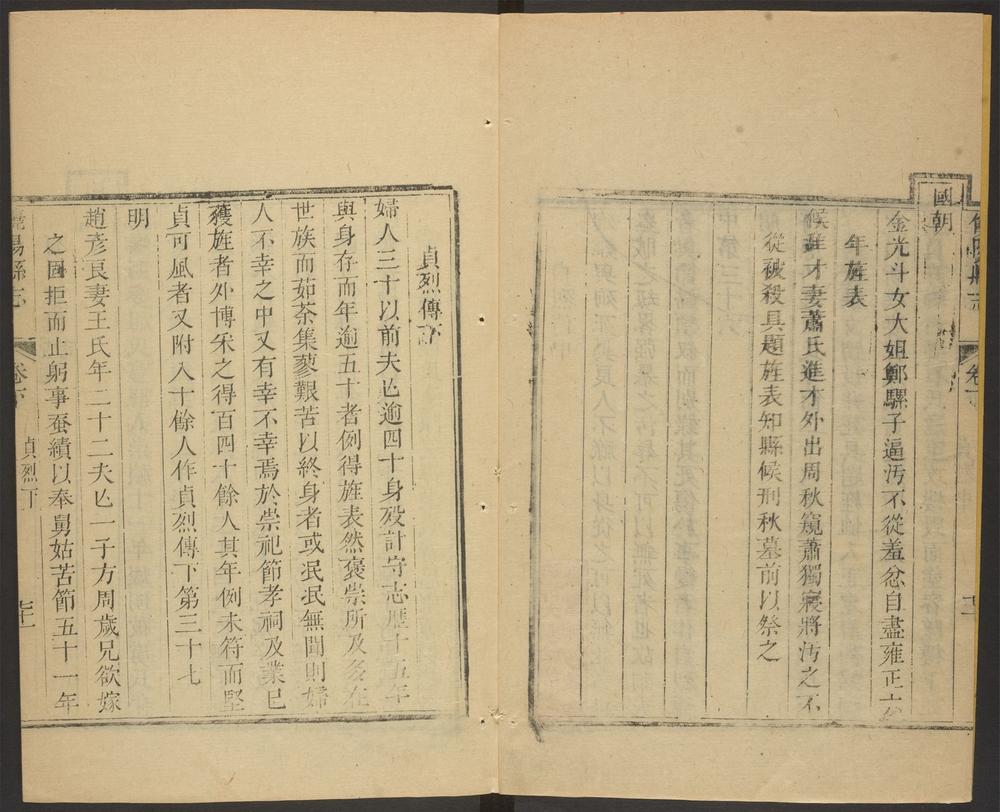 國朝
金光斗女大姐鄭騾子逼汚不從羞忿自盡雍正六
年旌表
候旌才妻蕭氏進才外出周秋窺蕭獨寢將汚之不
從被殺具題旌表知縣候刑秋墓前以祭之
貞烈傳下
婦人三十以前夫亡逾四十身歿計守志歷十五年
與身存而年逾五十者例得旌表然褒崇所及多在
世族而茹荼集蓼艱苦以終身者或泯泯無聞則婦
人不幸之中又有幸不幸焉於崇祀節孝祠及業已
獲旌者外博釆之得百四十餘人其年例未符而堅
貞可風者又附入十餘人作貞烈傳下第三十七
明
趙彥良妻王氏年二十二夫亡一子方周歲兄欲嫁
之固拒而止躬事蚕績以奉舅姑苦節五十一年
陽縣志
卷下
貞烈下